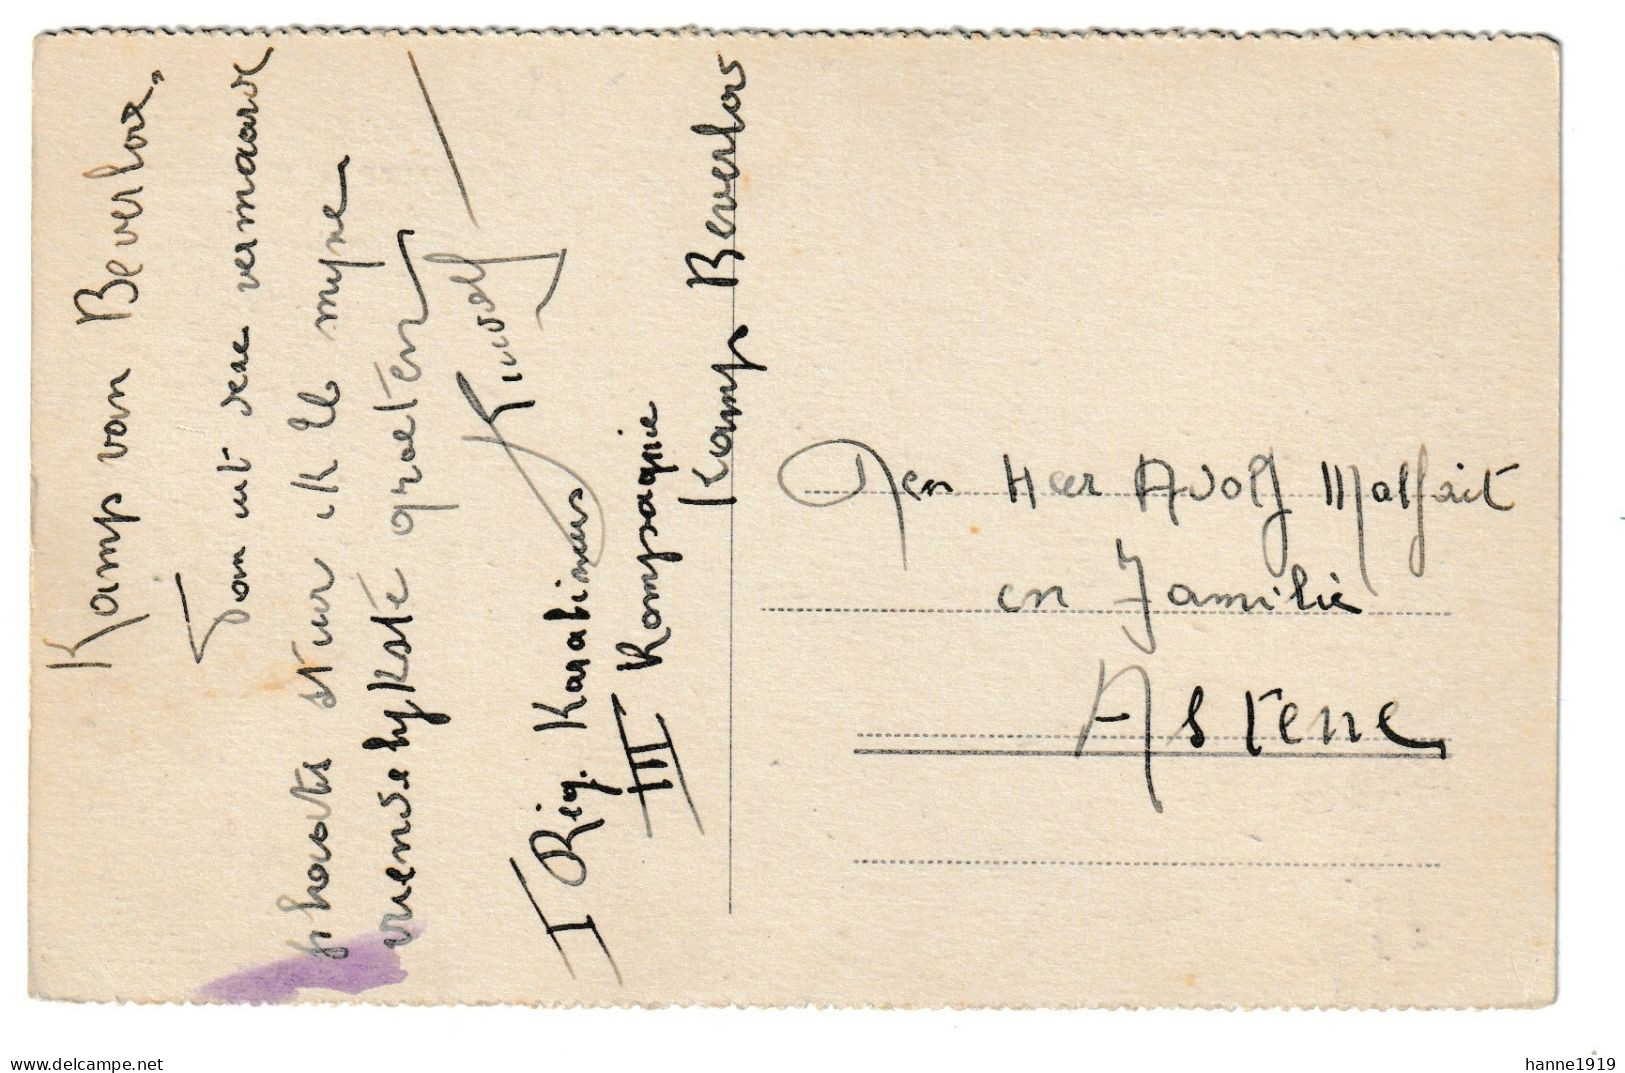 Kamp van Beverloo.
Van uit deze vermaarde
plaats stuur ik U mijne
vriendelykste groeten
I Reg. Karabiniers
III Kompagnie
Kamp Beverloo
Den Heer Adolf Malfait
en Familie
Astene
delcampe.net
hanne1919